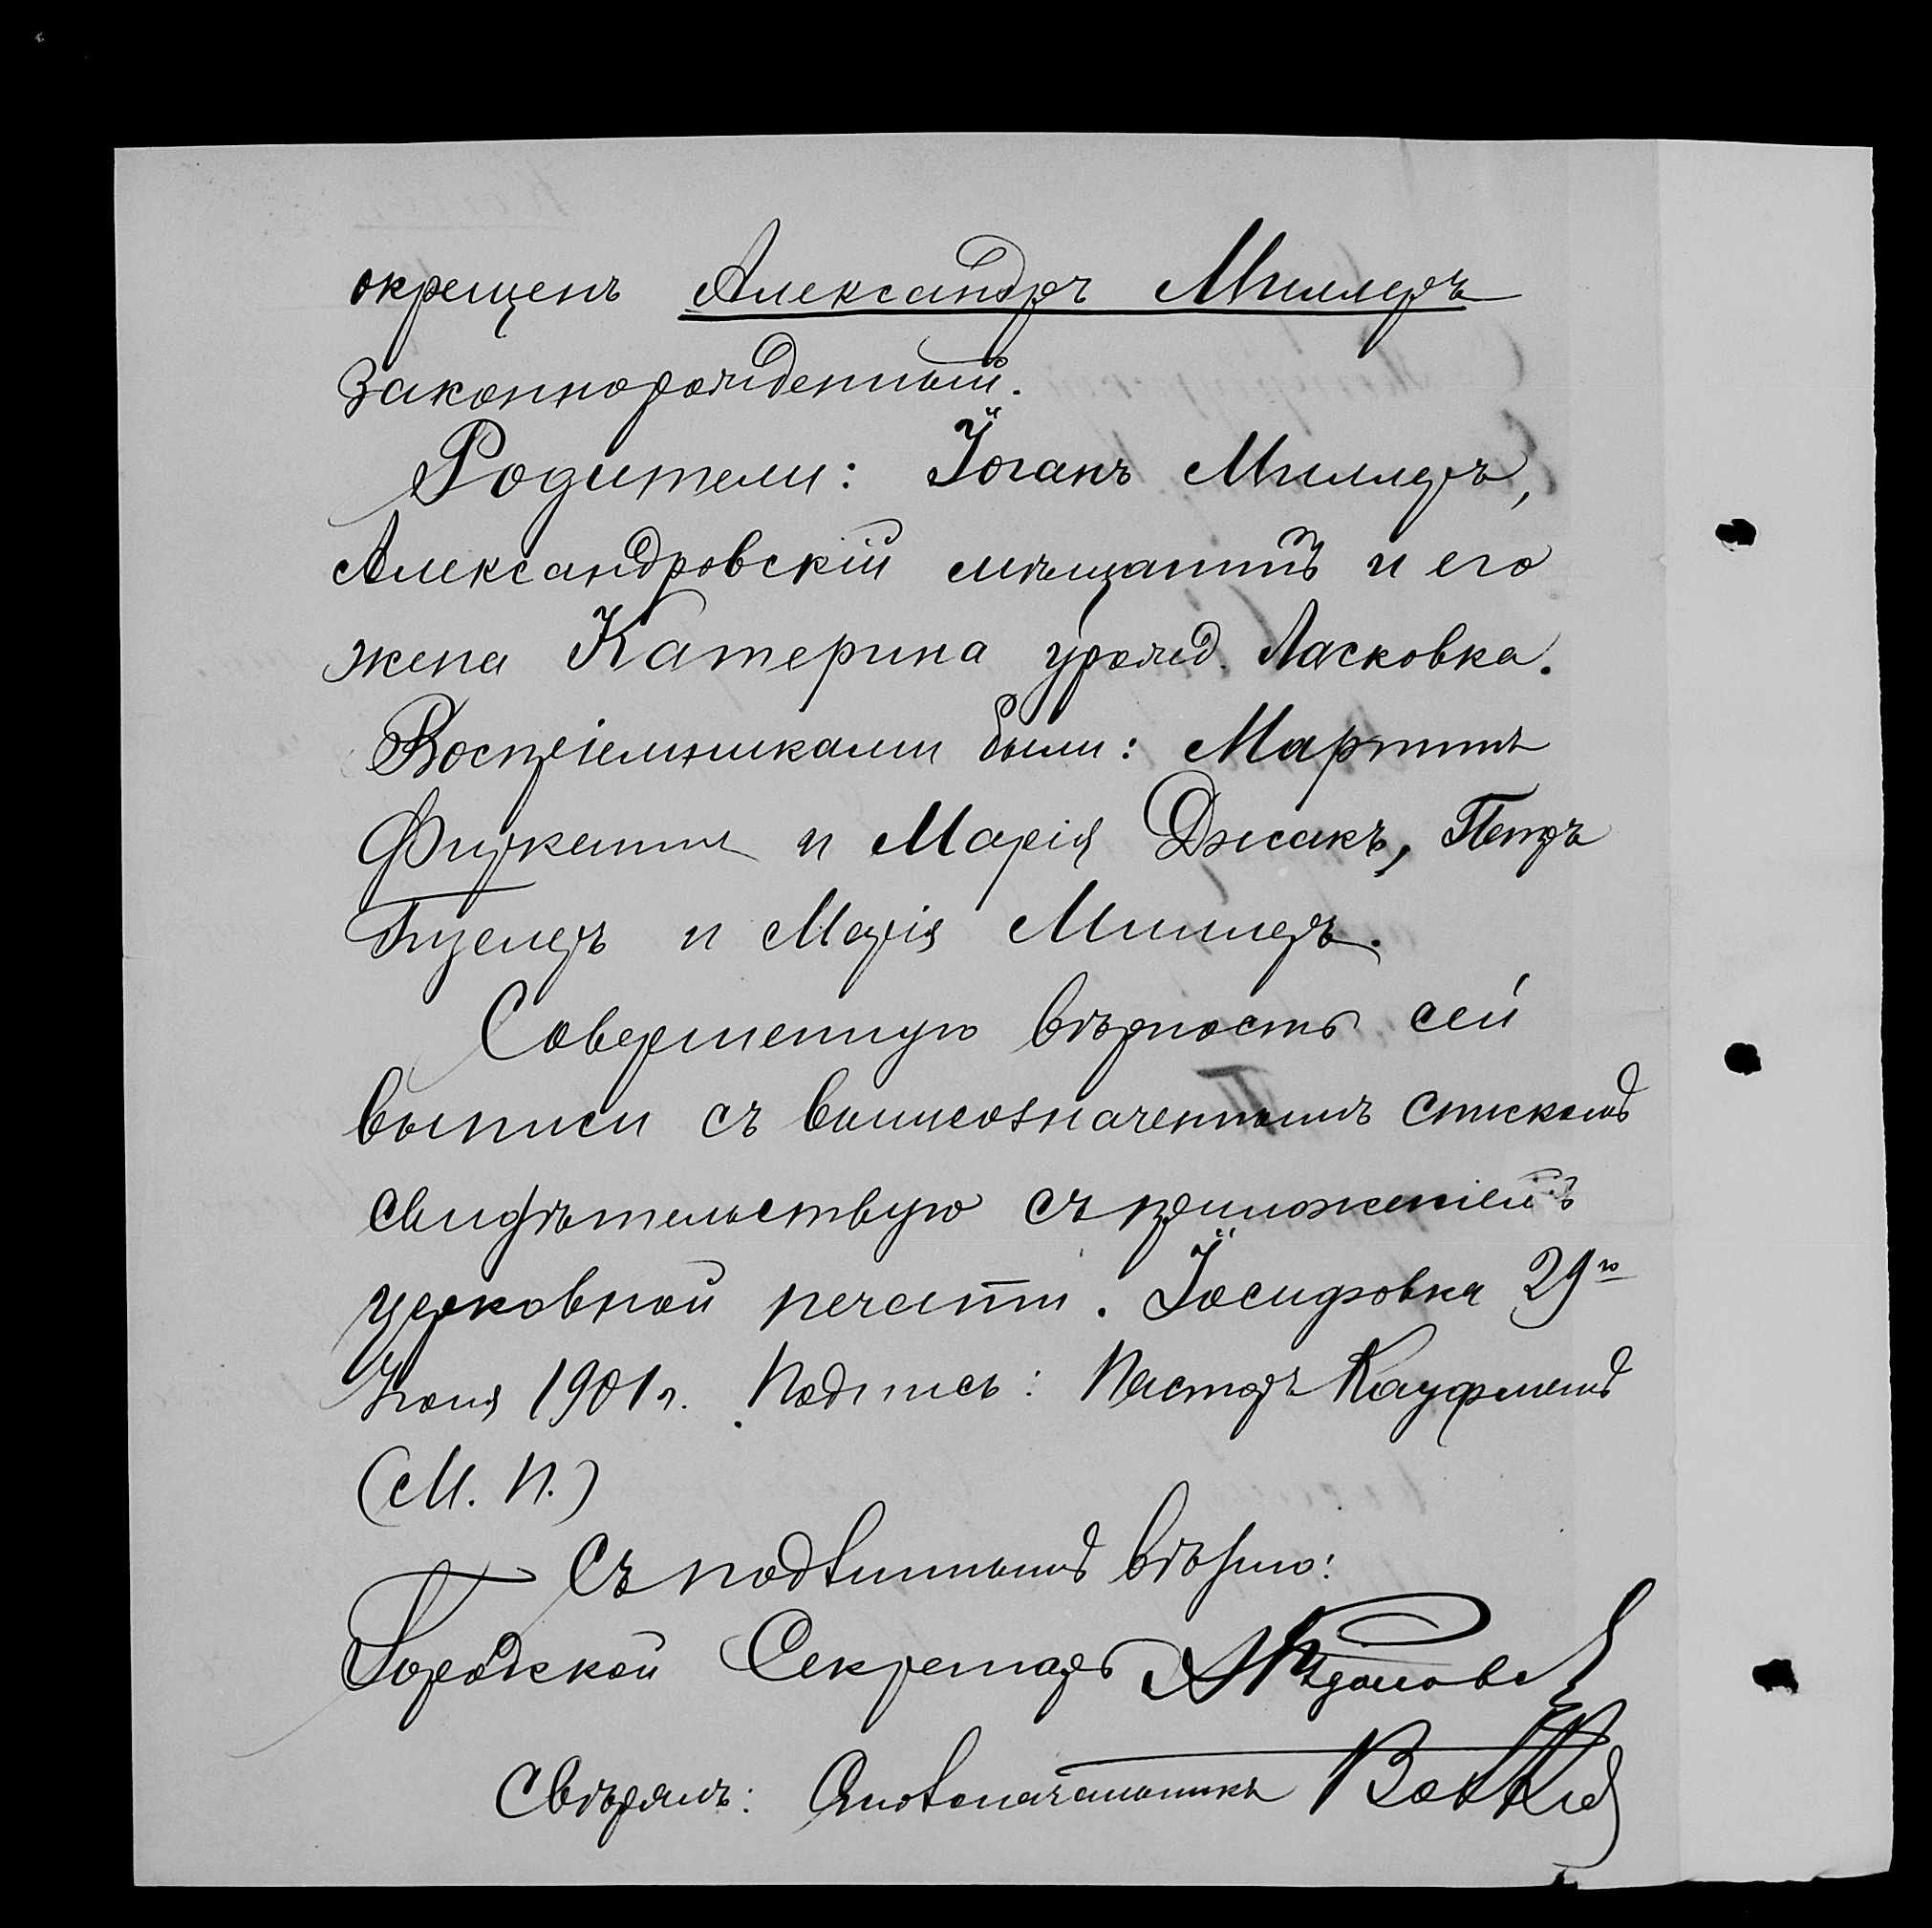 окрещенъ Александръ Миллеръ
законнорожденный.
Родители: Іоганъ Миллеръ,
Александровскій мѣщанинъ и его
жена Катерина урожд. Ласковка.
Воспріемниками были: Мартинъ
и Марія Джакъ, Петръ
и Марія Миллеръ.
Совершенную вѣрность сей
выписи съ вышеозначеннымъ спискомъ
свидѣтельствую съ приложеніемъ
церковной печати. Іосифовка 29го
Іюня 1901 г. Подпись: Пасторъ Кауфманъ
(М. П.)
Съ подлиннымъ вѣрно:
Городской Секретарь
Свѣрялъ: Столоначальникъ